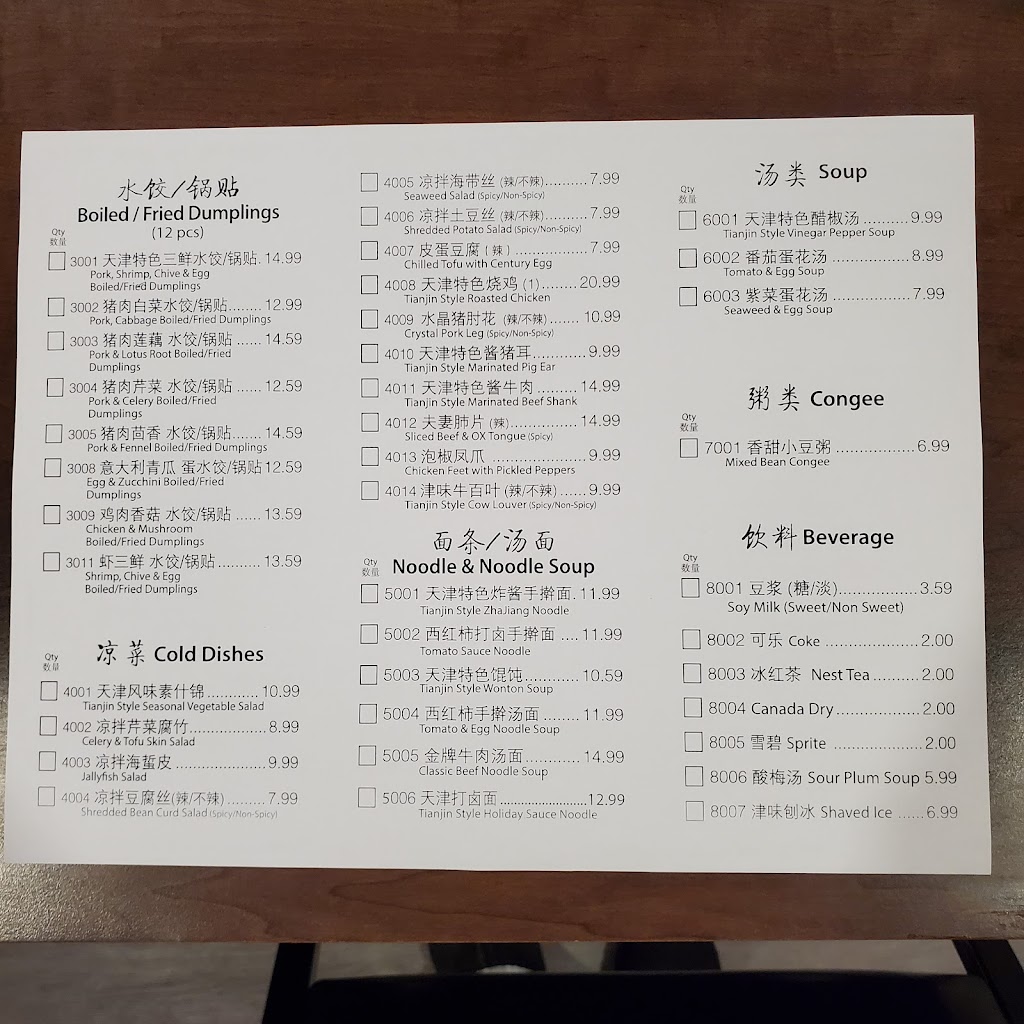 水饺/锅贴
Boiled / Fried Dumplings
(12 pcs)
Qty
数量
3001 天津特色三鲜水饺/锅贴. 14.99
Pork, Shrimp, Chive & Egg
Boiled/Fried Dumplings
3002 猪肉白菜水饺/锅贴........ 12.99
Pork, Cabbage Boiled/Fried Dumplings
3003 猪肉莲藕 水饺/锅贴 ...... 14.59
Pork & Lotus Root Boiled/Fried
Dumplings
3004 猪肉芹菜 水饺/锅贴 ...... 12.59
Pork & Celery Boiled/Fried
Dumplings
3005 猪肉茴香 水饺/锅贴....... 14.59
Pork & Fennel Boiled/Fried Dumplings
3008 意大利青瓜 蛋水饺/锅贴 12.59
Egg & Zucchini Boiled/Fried
Dumplings
3009 鸡肉香菇 水饺/锅贴 ...... 13.59
Chicken & Mushroom
Boiled/Fried Dumplings
3011 虾三鲜 水饺/锅贴........... 13.59
Shrimp, Chive & Egg
Boiled/Fried Dumplings
Qty
数量
凉菜 Cold Dishes
4001 天津风味素什锦............ 10.99
Tianjin Style Seasonal Vegetable Salad
4002 凉拌芹菜腐竹................. 8.99
Celery & Tofu Skin Salad
4003 凉拌海蜇皮 .................... 9.99
Jallyfish Salad
4004 凉拌豆腐丝(辣/不辣) ......... 7.99
Shredded Bean Curd Salad (Spicy/Non-Spicy)
4005 凉拌海带丝 (辣/不辣).......... 7.99
Seaweed Salad (Spicy/Non-Spicy)
4006 凉拌土豆丝 (辣/不辣).......... 7.99
Shredded Potato Salad (Spicy/Non-Spicy)
4007 皮蛋豆腐 ( 辣 ) .................. 7.99
Chilled Tofu with Century Egg
4008 天津特色烧鸡 (1)......... 20.99
Tianjin Style Roasted Chicken
4009 水晶猪肘花 (辣/不辣)....... 10.99
Crystal Pork Leg (Spicy/Non-Spicy)
4010 天津特色酱猪耳............ 9.99
Tianjin Style Marinated Pig Ear
4011 天津特色酱牛肉 ......... 14.99
Tianjin Style Marinated Beef Shank
4012 夫妻肺片 (辣)............... 14.99
Sliced Beef & OX Tongue (Spicy)
4013 泡椒凤爪 ..................... 9.99
Chicken Feet with Pickled Peppers
4014 津味牛百叶 (辣/不辣) ....... 9.99
Tianjin Style Cow Louver (Spicy/Non-Spicy)
面条/汤面
Qty
数量
Noodle & Noodle Soup
5001 天津特色炸酱手擀面. 11.99
Tianjin Style ZhaJiang Noodle
5002 西红柿打卤手擀面 .... 11.99
Tomato Sauce Noodle
5003 天津特色馄饨............ 10.59
Tianjin Style Wonton Soup
5004 西红柿手擀汤面 ........ 11.99
Tomato & Egg Noodle Soup
5005 金牌牛肉汤面 ............ 14.99
Classic Beef Noodle Soup
5006 天津打卤面............................12.99
Tianjin Style Holiday Sauce Noodle
汤类 Soup
Qty
数量
6001 天津特色醋椒汤 .......... 9.99
Tianjin Style Vinegar Pepper Soup
6002 番茄蛋花汤 .................. 8.99
Tomato & Egg Soup
6003 紫菜蛋花汤 .................. 7.99
Seaweed & Egg Soup
粥类 Congee
Qty
数量
7001 香甜小豆粥 ................. 6.99
Mixed Bean Congee
饮料 Beverage
Qty
数量
8001 豆浆 (糖/淡)....................... 3.59
Soy Milk (Sweet/Non Sweet)
8002 可乐 Coke ...................... 2.00
8003 冰红茶 Nest Tea........... 2.00
8004 Canada Dry.................. 2.00
8005 雪碧 Sprite ................... 2.00
8006 酸梅汤 Sour Plum Soup 5.99
8007 津味刨冰 Shaved Ice ...... 6.99